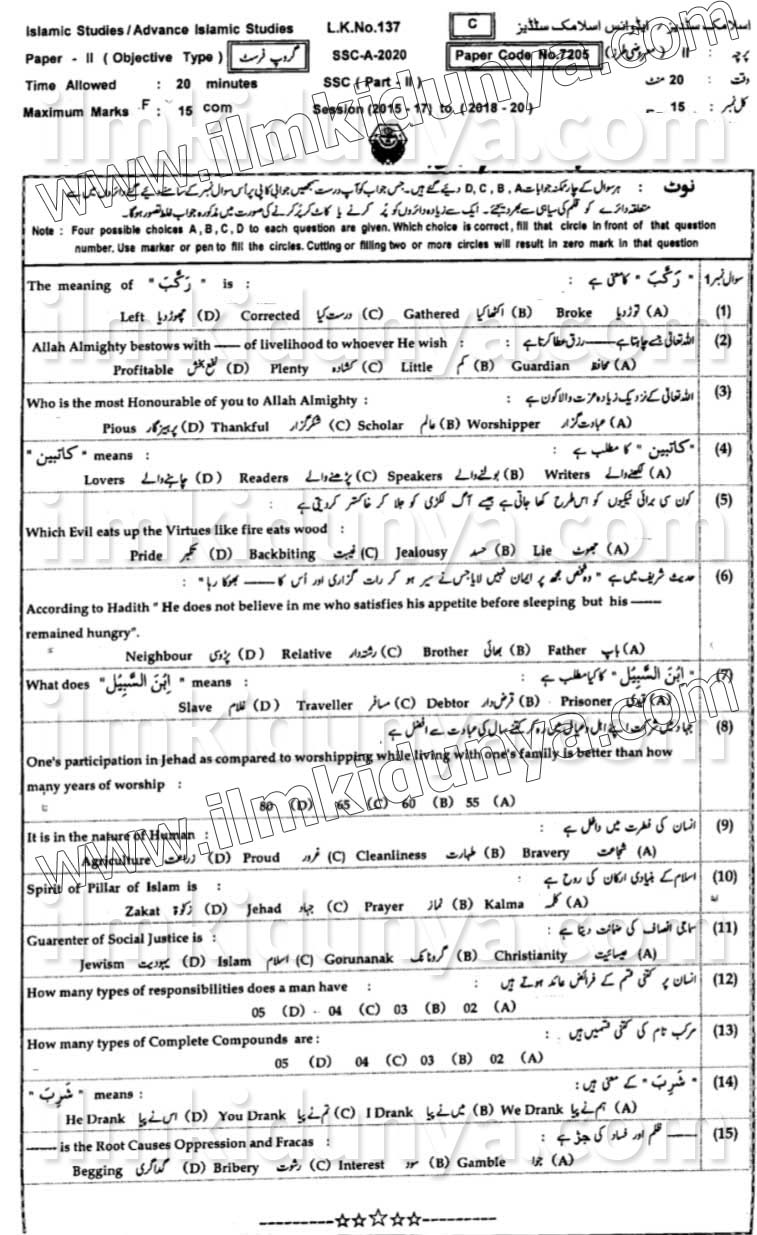 Islamic Studies/Advance Islamic Studies L.K.No.137 C اسلامک سٹڈیز / ایڈوانس اسلامک سٹڈیز
Paper - II ( Objective Type ) گروپ فرسٹ SSC-A-2020 Paper Code No.7205 پرچہ : II (معروضی طرز)
Time Allowed : 20 minutes SSC ( Part - II ) وقت : 20 منٹ
Maximum Marks : 15 Session (2015 - 17) to ( 2018 - 20) کل نمبر : 15
نوٹ : ہر سوال کے چار ممکنہ جوابات D, C, B, A دیے گئے ہیں۔ جس جواب کو آپ درست سمجھیں جوابی کاپی پر اُس سوال نمبر کے سامنے دیے گئے دائروں میں سے
متعلقہ دائرے کو قلم کی سیاہی سے بھر دیجئے۔ ایک سے زیادہ دائروں کو پُر کرنے یا کاٹ کر پُر کرنے کی صورت میں مذکورہ جواب غلط تصور ہوگا۔
Note : Four possible choices A, B, C, D to each question are given. Which choice is correct, fill that circle in front of that question
number. Use marker or pen to fill the circles. Cutting or filling two or more circles will result in zero mark in that question
The meaning of " رَكَّبَ " is : " رَكَّبَ " کا معنی ہے : سوال نمبر 1
Left چھوڑ دیا (D) Corrected درست کیا (C) Gathered اکٹھا کیا (B) Broke توڑ دیا (A) (1)
Allah Almighty bestows with —— of livelihood to whoever He wish : اللہ تعالیٰ جسے چاہتا ہے —— رزق عطا کرتا ہے : (2)
Profitable نفع بخش (D) Plenty کشادہ (C) Little کم (B) Guardian محافظ (A)
Who is the most Honourable of you to Allah Almighty : اللہ تعالیٰ کے نزدیک زیادہ عزت والا کون ہے : (3)
Pious پرہیزگار (D) Thankful شکر گزار (C) Scholar عالم (B) Worshipper عبادت گزار (A)
" کاتبین " means : " کاتبین " کا مطلب ہے : (4)
Lovers چاہنے والے (D) Readers پڑھنے والے (C) Speakers بولنے والے (B) Writers لکھنے والے (A)
کون سی برائی نیکیوں کو اس طرح کھا جاتی ہے جیسے آگ لکڑی کو جلا کر خاکستر کر دیتی ہے : (5)
Which Evil eats up the Virtues like fire eats wood :
Pride تکبر (D) Backbiting غیبت (C) Jealousy حسد (B) Lie جھوٹ (A)
حدیث شریف میں ہے " وہ شخص مجھ پر ایمان نہیں لایا جس نے سیر ہو کر رات گزاری اور اُس کا —— بھوکا رہا " : (6)
According to Hadith " He does not believe in me who satisfies his appetite before sleeping but his ——
remained hungry".
Neighbour پڑوسی (D) Relative رشتہ دار (C) Brother بھائی (B) Father باپ (A)
What does " اِبْنَ السَّبِيْل " means : " اِبْنَ السَّبِيْل " کا کیا مطلب ہے : (7)
Slave غلام (D) Traveller مسافر (C) Debtor قرض دار (B) Prisoner قیدی (A)
جہاد میں شرکت اپنے اہل و عیال میں رہ کر کتنے سال کی عبادت سے افضل ہے (8)
One's participation in Jehad as compared to worshipping while living with one's family is better than how
many years of worship :
80 (D) 65 (C) 60 (B) 55 (A)
It is in the nature of Human : انسان کی فطرت میں داخل ہے : (9)
Agriculture زراعت (D) Proud غرور (C) Cleanliness طہارت (B) Bravery شجاعت (A)
Spirit of Pillar of Islam is : اسلام کے بنیادی ارکان کی روح ہے : (10)
Zakat زکوٰۃ (D) Jehad جہاد (C) Prayer نماز (B) Kalma کلمہ (A)
Guarenter of Social Justice is : سماجی انصاف کی ضمانت دیتا ہے : (11)
Jewism یہودیت (D) Islam اسلام (C) Gorunanak گرونانک (B) Christianity عیسائیت (A)
How many types of responsibilities does a man have : انسان پر کتنی قسم کے فرائض عائد ہوتے ہیں : (12)
05 (D) 04 (C) 03 (B) 02 (A)
How many types of Complete Compounds are : مرکب تام کی کتنی قسمیں ہیں : (13)
05 (D) 04 (C) 03 (B) 02 (A)
" شَرِبَ " means : " شَرِبَ " کے معنی ہیں : (14)
He Drank اس نے پیا (D) You Drank تم نے پیا (C) I Drank میں نے پیا (B) We Drank ہم نے پیا (A)
—— is the Root Causes Oppression and Fracas : —— ظلم اور فساد کی جڑ ہے : (15)
Begging گداگری (D) Bribery رشوت (C) Interest سود (B) Gamble جوا (A)
www.ilmkidunya.com
www.ilmkidunya.com
ilmkidunya.com